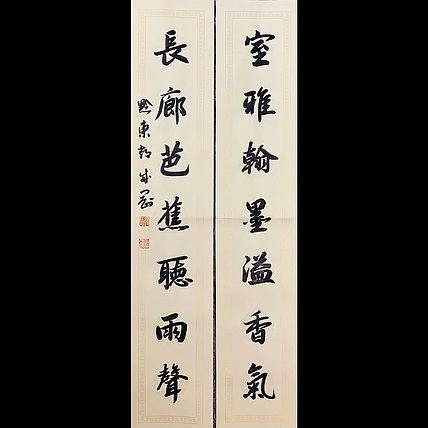 室雅翰墨溢香氣
長廊芭蕉聽雨聲
黔東